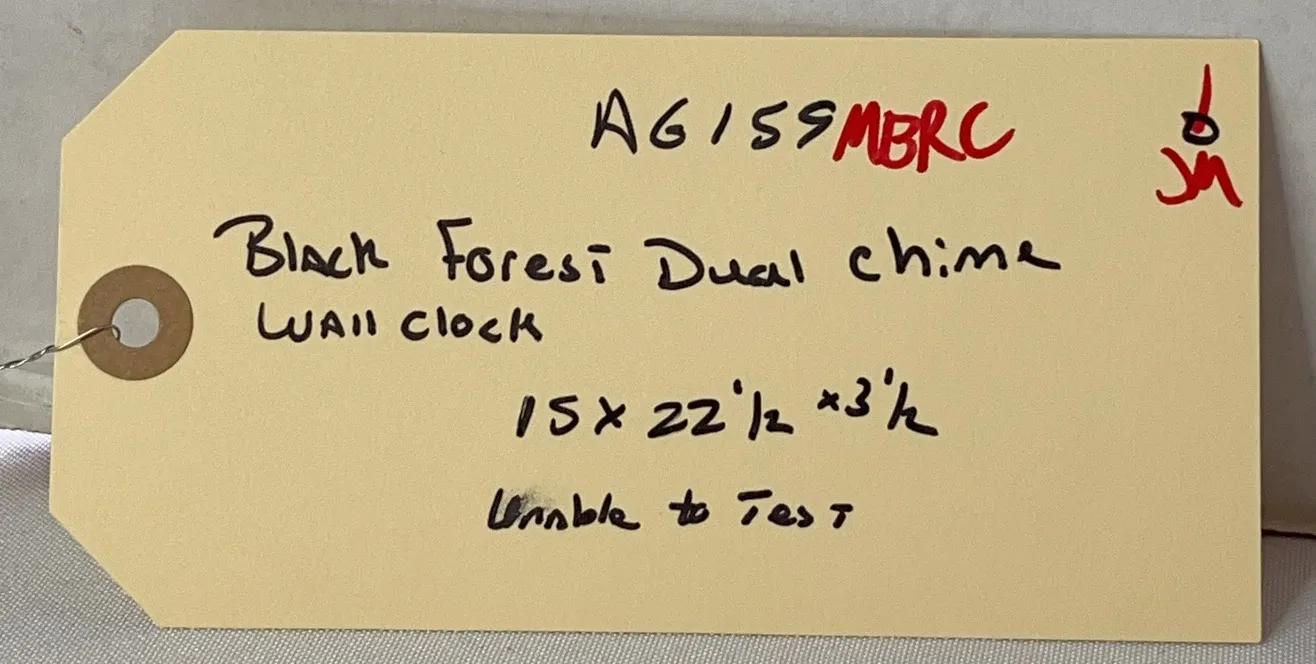 AG159MBRC
JM
Black Forest Dual Chime
Wall Clock
15 x 22 1/2 x 3 1/2
Unable to Test